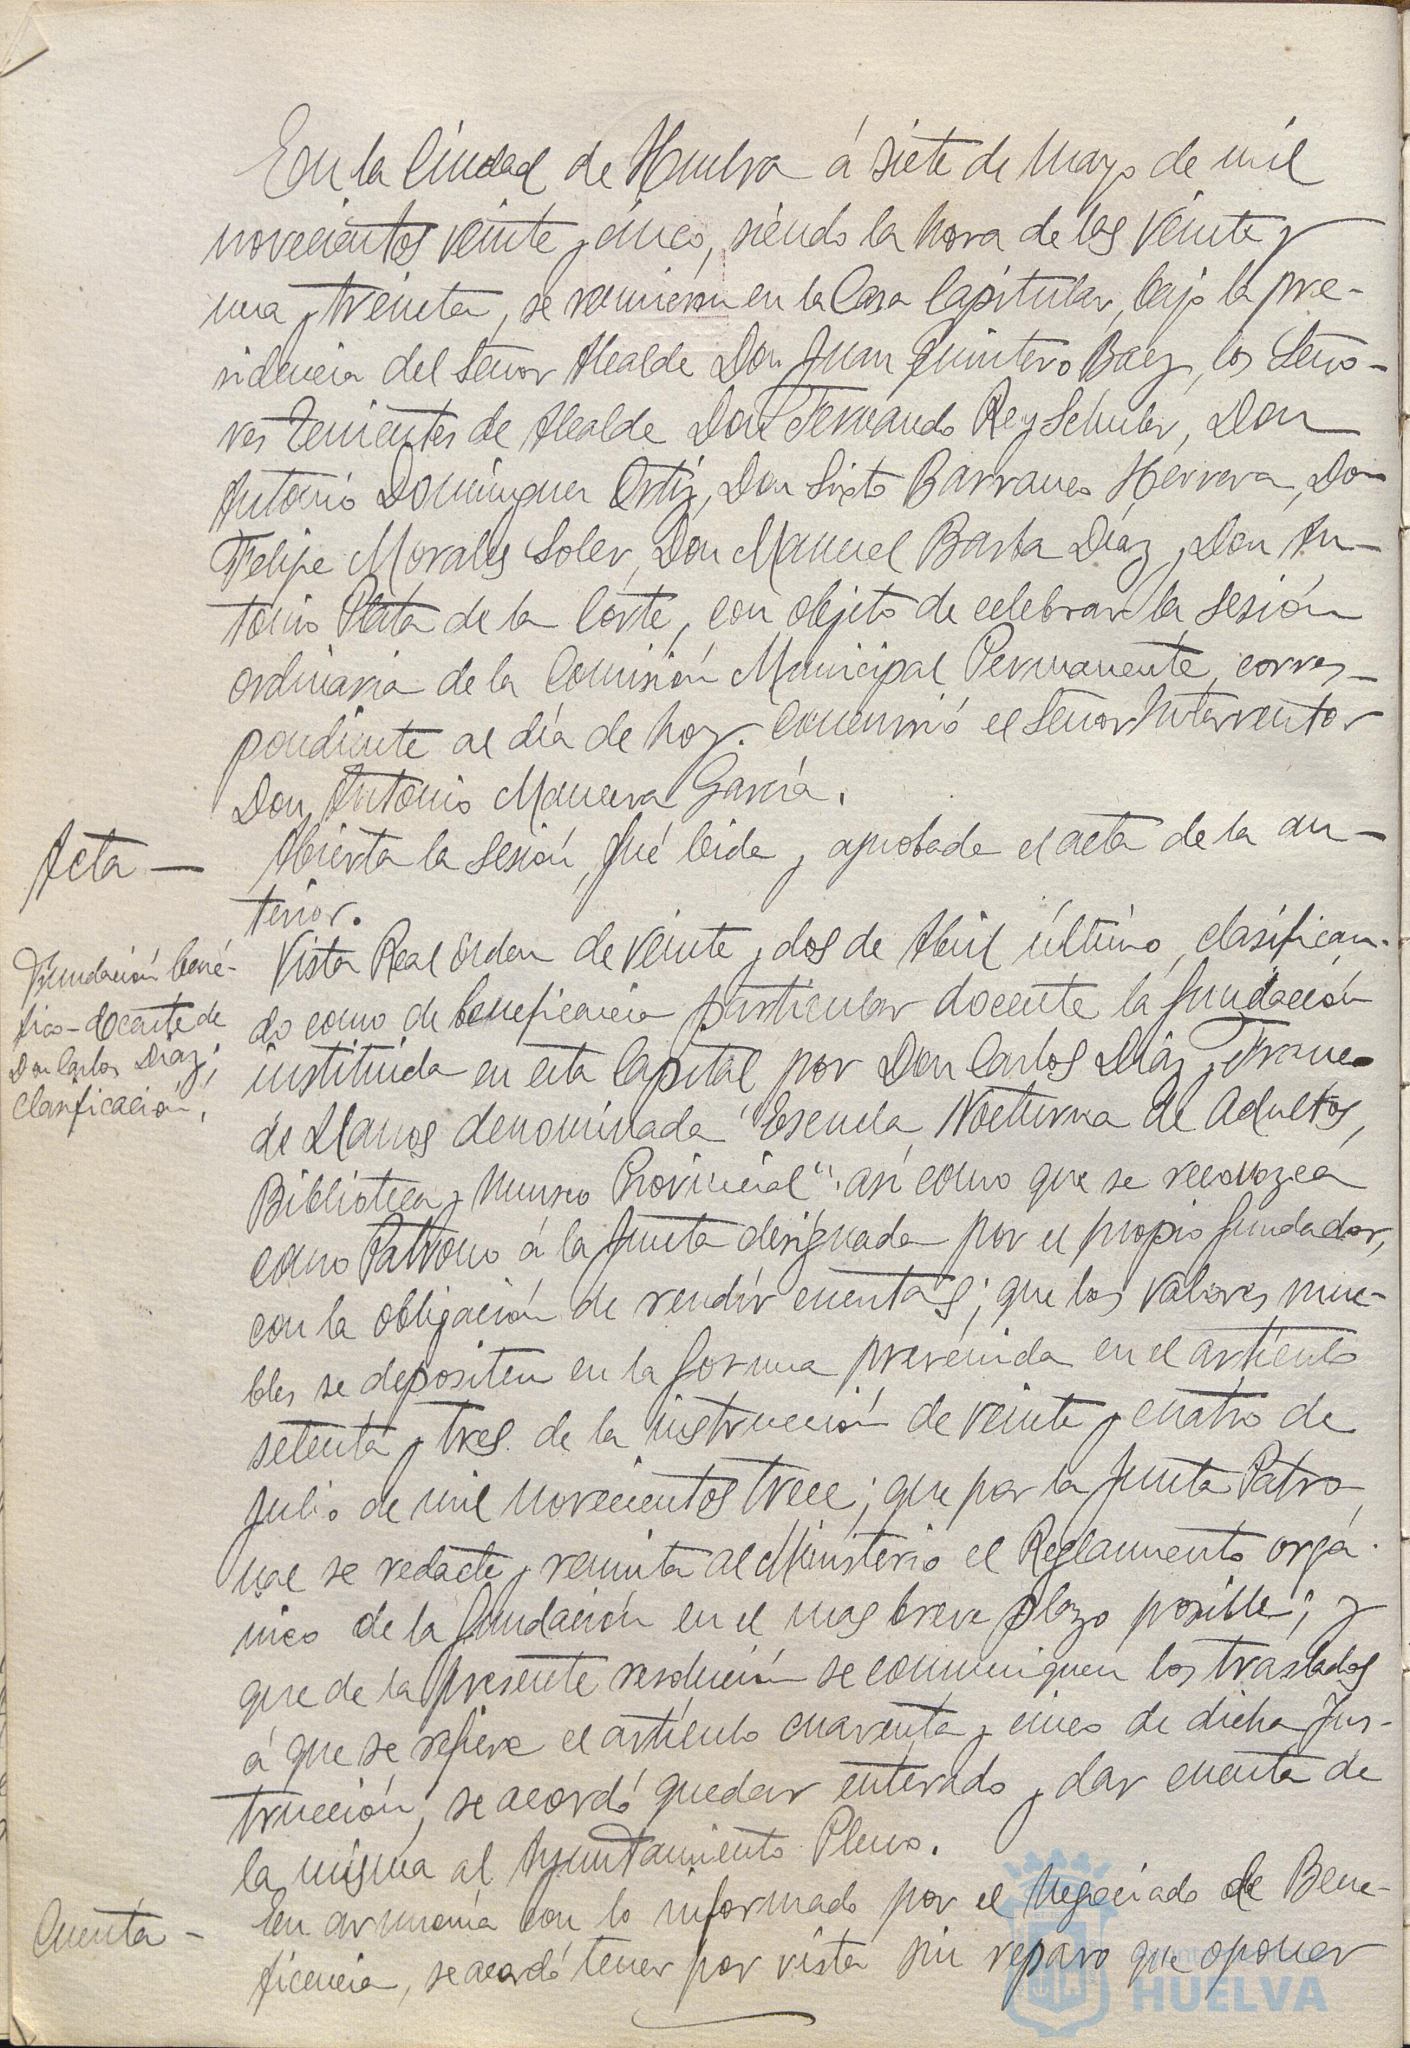 En la Ciudad de Huelva á siete de Mayo de mil
novecientos veinte y cinco, siendo la hora de las veinte y
una y treinta, se reunieron en la Casa Capitular, bajo la pre-
sidencia del Señor Alcalde Don Juan Quintero Baez, los Seño-
res Tenientes de Alcalde Don Fernando Rey Schuler, Don
Antonio Dominguez Ortiz, Don Sixto Barranco Herrera, Don
Felipe Morales Soler, Don Manuel Barba Díaz y Don An-
tonio Plata de la Corte, con objeto de celebrar la sesión
ordinaria de la Comisión Municipal Permanente, corres-
pondiente al día de hoy. Concurrió el Señor Interventor
Don Antonio Mancera García.
Acta —
Abierta la sesión, fué leida y aprobada el acta de la an-
terior.
Fundación bené-
fico-docente de
Don Carlos Díaz;
Clasificación.
Vista Real orden de veinte y dos de Abril último, clasifican-
do como de beneficencia particular docente la fundación
instituida en esta Capital por Don Carlos Díaz y Franco
de Llanos denominada "Escuela Nocturna de Adultos,
Biblioteca y Museo Provincial": así como que se reconozca
como Patrono á la Junta designada por el propio fundador,
con la obligación de rendir cuentas; que los valores mue-
bles se depositen en la forma prevenida en el artículo
setenta y tres de la instrucción de veinte y cuatro de
Julio de mil novecientos trece; que por la Junta Patro-
nal se redacte y remita al Ministerio el Reglamento orgá-
nico de la fundación en el mas breve plazo posible; y
que de la presente resolución se comuniquen los traslados
á que se refiere el artículo cuarenta y cinco de dicha Ins-
trucción, se acordó quedar enterado y dar cuenta de
la misma al Ayuntamiento Pleno.
Cuenta -
En armonía con lo informado por el Negociado de Bene-
ficencia, se acordó tener por vista sin reparo que oponer
HUELVA